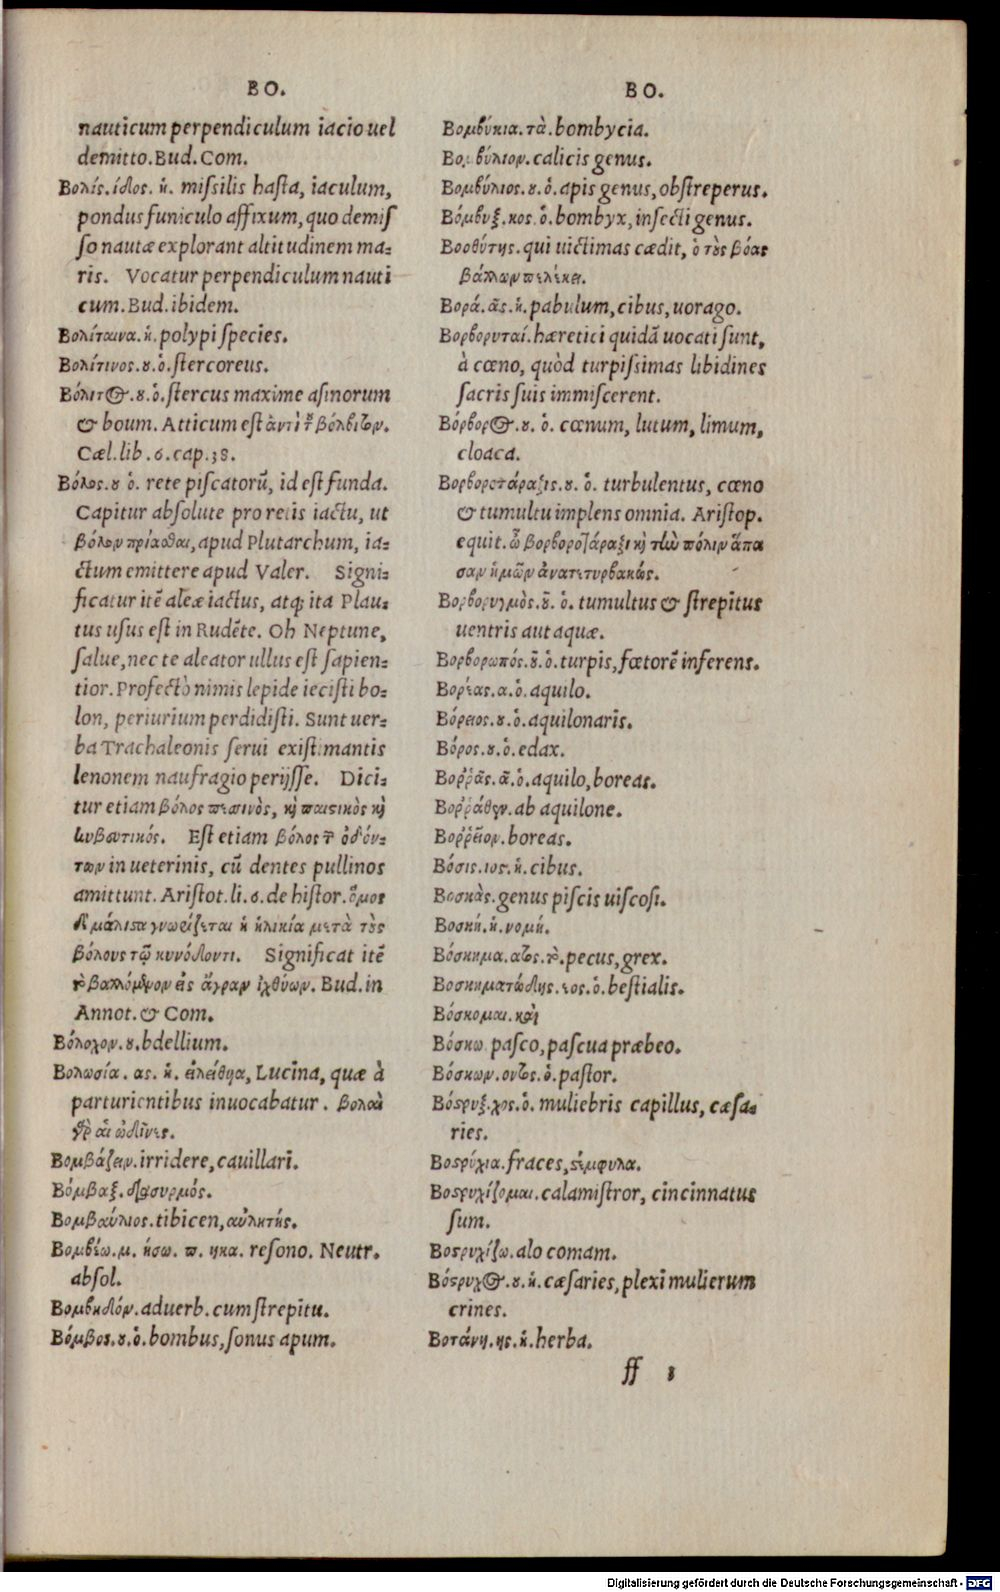 BO.
nauticum perpendiculum iacio uel
demitto. Bud. Com.
Βολίς. ίδος. ἡ. miſsilis haſta, iaculum,
pondus funiculo affixum, quo demiſ
ſo nautæ explorant altitudinem ma-
ris. Vocatur perpendiculum nauti
cum. Bud. ibidem.
Βολίταινα. ἡ. polypi ſpecies.
Βολίτινος. ου. ὁ. ſtercoreus.
Βόλιτος. ου. ὁ. ſtercus maxime aſinorum
& boum. Atticum eſt ἀντὶ τοῦ βόλβιτον.
Cæl. lib. 6. cap. 38.
Βόλος. ου ὁ. rete piſcatorū, id eſt funda.
Capitur abſolute pro retis iactu, ut
βόλον πρίασθαι, apud Plutarchum, ia-
ctum emittere apud Valer. Signi-
ficatur itē aleæ iactus, atq; ita Plau-
tus uſus eſt in Rudēte. Oh Neptune,
ſalue, nec te aleator ullus eſt ſapien-
tior. Profectò nimis lepide ieciſti bo-
lon, periurium perdidiſti. Sunt uer-
ba Trachaleonis ſerui exiſtimantis
lenonem naufragio perijſſe. Dici-
tur etiam βόλος πεσινὸς, καὶ παιστικὸς καὶ
κυβευτικός. Eſt etiam βόλος τῶν ὀδόν-
των in ueterinis, cū dentes pullinos
amittunt. Ariſtot. li. 6. de hiſtor. ὅμως
δὲ μάλιστα γνωρίζεται ἡ ἡλικία μετὰ τοὺς
βόλους τῷ κυνόδοντι. Significat itē
τὸ βαλλόμενον εἰς ἄγραν ἰχθύων. Bud. in
Annot. & Com.
Βόλοχον. ου. bdellium.
Βολωσία. ας. ἡ. εἰλείθυα, Lucina, quæ à
parturientibus inuocabatur. βολαὶ
γὰρ αἱ ὠδῖνες.
Βομβάζειν. irridere, cauillari.
Βόμβαξ. διασυρμός.
Βομβαύλιος. tibicen, αὐλητής.
Βομβέω. μ. ήσω. π. ηκα. reſono. Neutr.
abſol.
Βομβηδόν. aduerb. cum ſtrepitu.
Βόμβος. ου. ὁ. bombus, ſonus apum.
BO.
Βομβύκια. τὰ. bombycia.
Βομβύλιον. calicis genus.
Βομβύλιος. ου. ὁ. apis genus, obſtreperus.
Βόμβυξ. κος. ὁ. bombyx, inſecti genus.
Βοοθύτης. qui uictimas cædit, ὁ τοὺς βόας
βάλλων πελέκει.
Βορά. ᾶς. ἡ. pabulum, cibus, uorago.
Βορβορυταί. hæretici quidā uocati ſunt,
à cœno, quòd turpiſsimas libidines
ſacris ſuis immiſcerent.
Βόρβορος. ου. ὁ. cœnum, lutum, limum,
cloaca.
Βορβοροτάραξις. ου. ὁ. turbulentus, cœno
& tumultu implens omnia. Ariſtop.
equit. ὦ βορβοροτάραξι καὶ τὴν πόλιν ἅπα
σαν ἡμῶν ἀνατετυρβακώς.
Βορβορυγμὸς. οῦ. ὁ. tumultus & ſtrepitus
uentris aut aquæ.
Βορβορωπός. οῦ. ὁ. turpis, fœtorē inferens.
Βορέας. α. ὁ. aquilo.
Βόρειος. ου. ὁ. aquilonaris.
Βόρος. ου. ὁ. edax.
Βοῤῥᾶς. ᾶ. ὁ. aquilo, boreas.
Βοῤῥάθεν. ab aquilone.
Βοῤῥεῖον. boreas.
Βόσις. ιος. ἡ. cibus.
Βοσκὰς. genus piſcis uiſcoſi.
Βοσκή. ἡ. νομή.
Βόσκημα. ατος. τὸ. pecus, grex.
Βοσκηματώδης. εος. ὁ. beſtialis.
Βόσκομαι. καὶ
Βόσκω. paſco, paſcua præbeo.
Βόσκων. οντος. ὁ. paſtor.
Βόστρυξ. χος. ὁ. muliebris capillus, cæſa-
ries.
Βοστρύχια. fraces, στέμφυλα.
Βοστρυχίζομαι. calamiſtror, cincinnatus
ſum.
Βοστρυχίζω. alo comam.
Βόστρυχος. ου. ἡ. cæſaries, plexi mulierum
crines.
Βοτάνη. ης. ἡ. herba.
ff 8
Digitalisierung gefördert durch die Deutsche Forschungsgemeinschaft - DFG